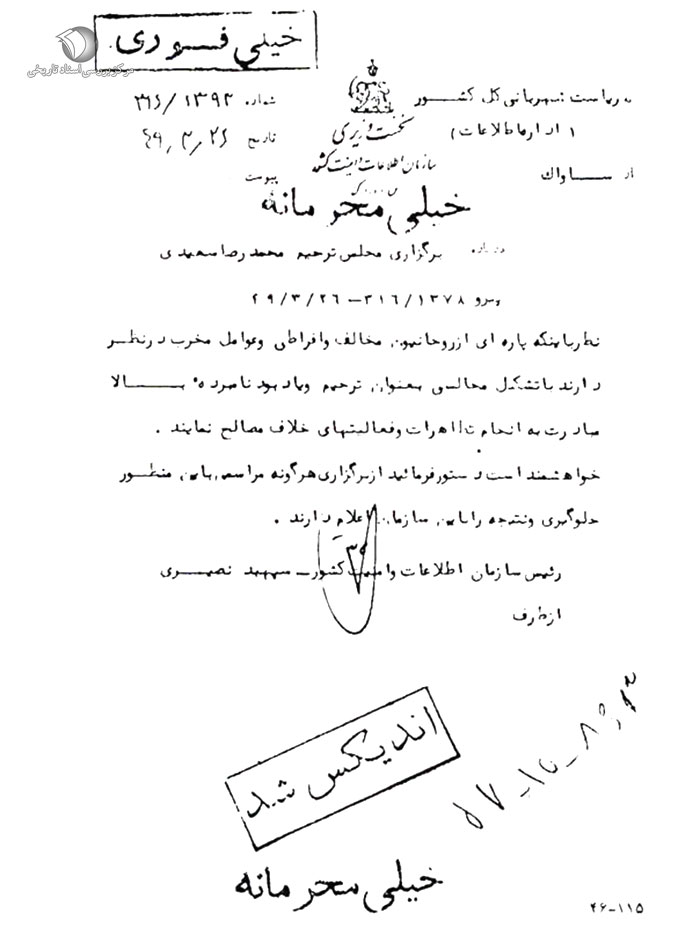 خیلی فوری
مرکز بررسی اسناد تاریخی
به ریاست شهربانی کل کشور
شماره ۳۱۶/۱۳۹۲
(اداره اطلاعات)
نخست وزیری
تاریخ ۴۹,۳,۲۶
سازمان اطلاعات و امنیت کشور
از ساواك
پیوست
س.ا.و.ا.ک
خیلی محرمانه
درباره برگزاری مجلس ترحیم محمد رضا سعیدی
پیرو ۳۱۶/۱۳۷۸-۲۹/۳/۲۶
نظر باینکه پاره ای از روحانیون مخالف و افراطی و عوامل مخرب در نظر
دارند با تشکیل مجالسی بعنوان ترحیم و یاد بود نامبرده بالا
مبادرت به انجام تظاهرات و فعالیتهای خلاف مصالح نمایند .
خواهشمند است دستور فرمائید از برگزاری هرگونه مراسم باین منظور
جلوگیری و نتیجه را باین سازمان اعلام دارند .
رئیس سازمان اطلاعات و امنیت کشور ـ سپهبد نصیری
از طرف
اندیکس شد
خیلی محرمانه
۴۶-۱۱۵